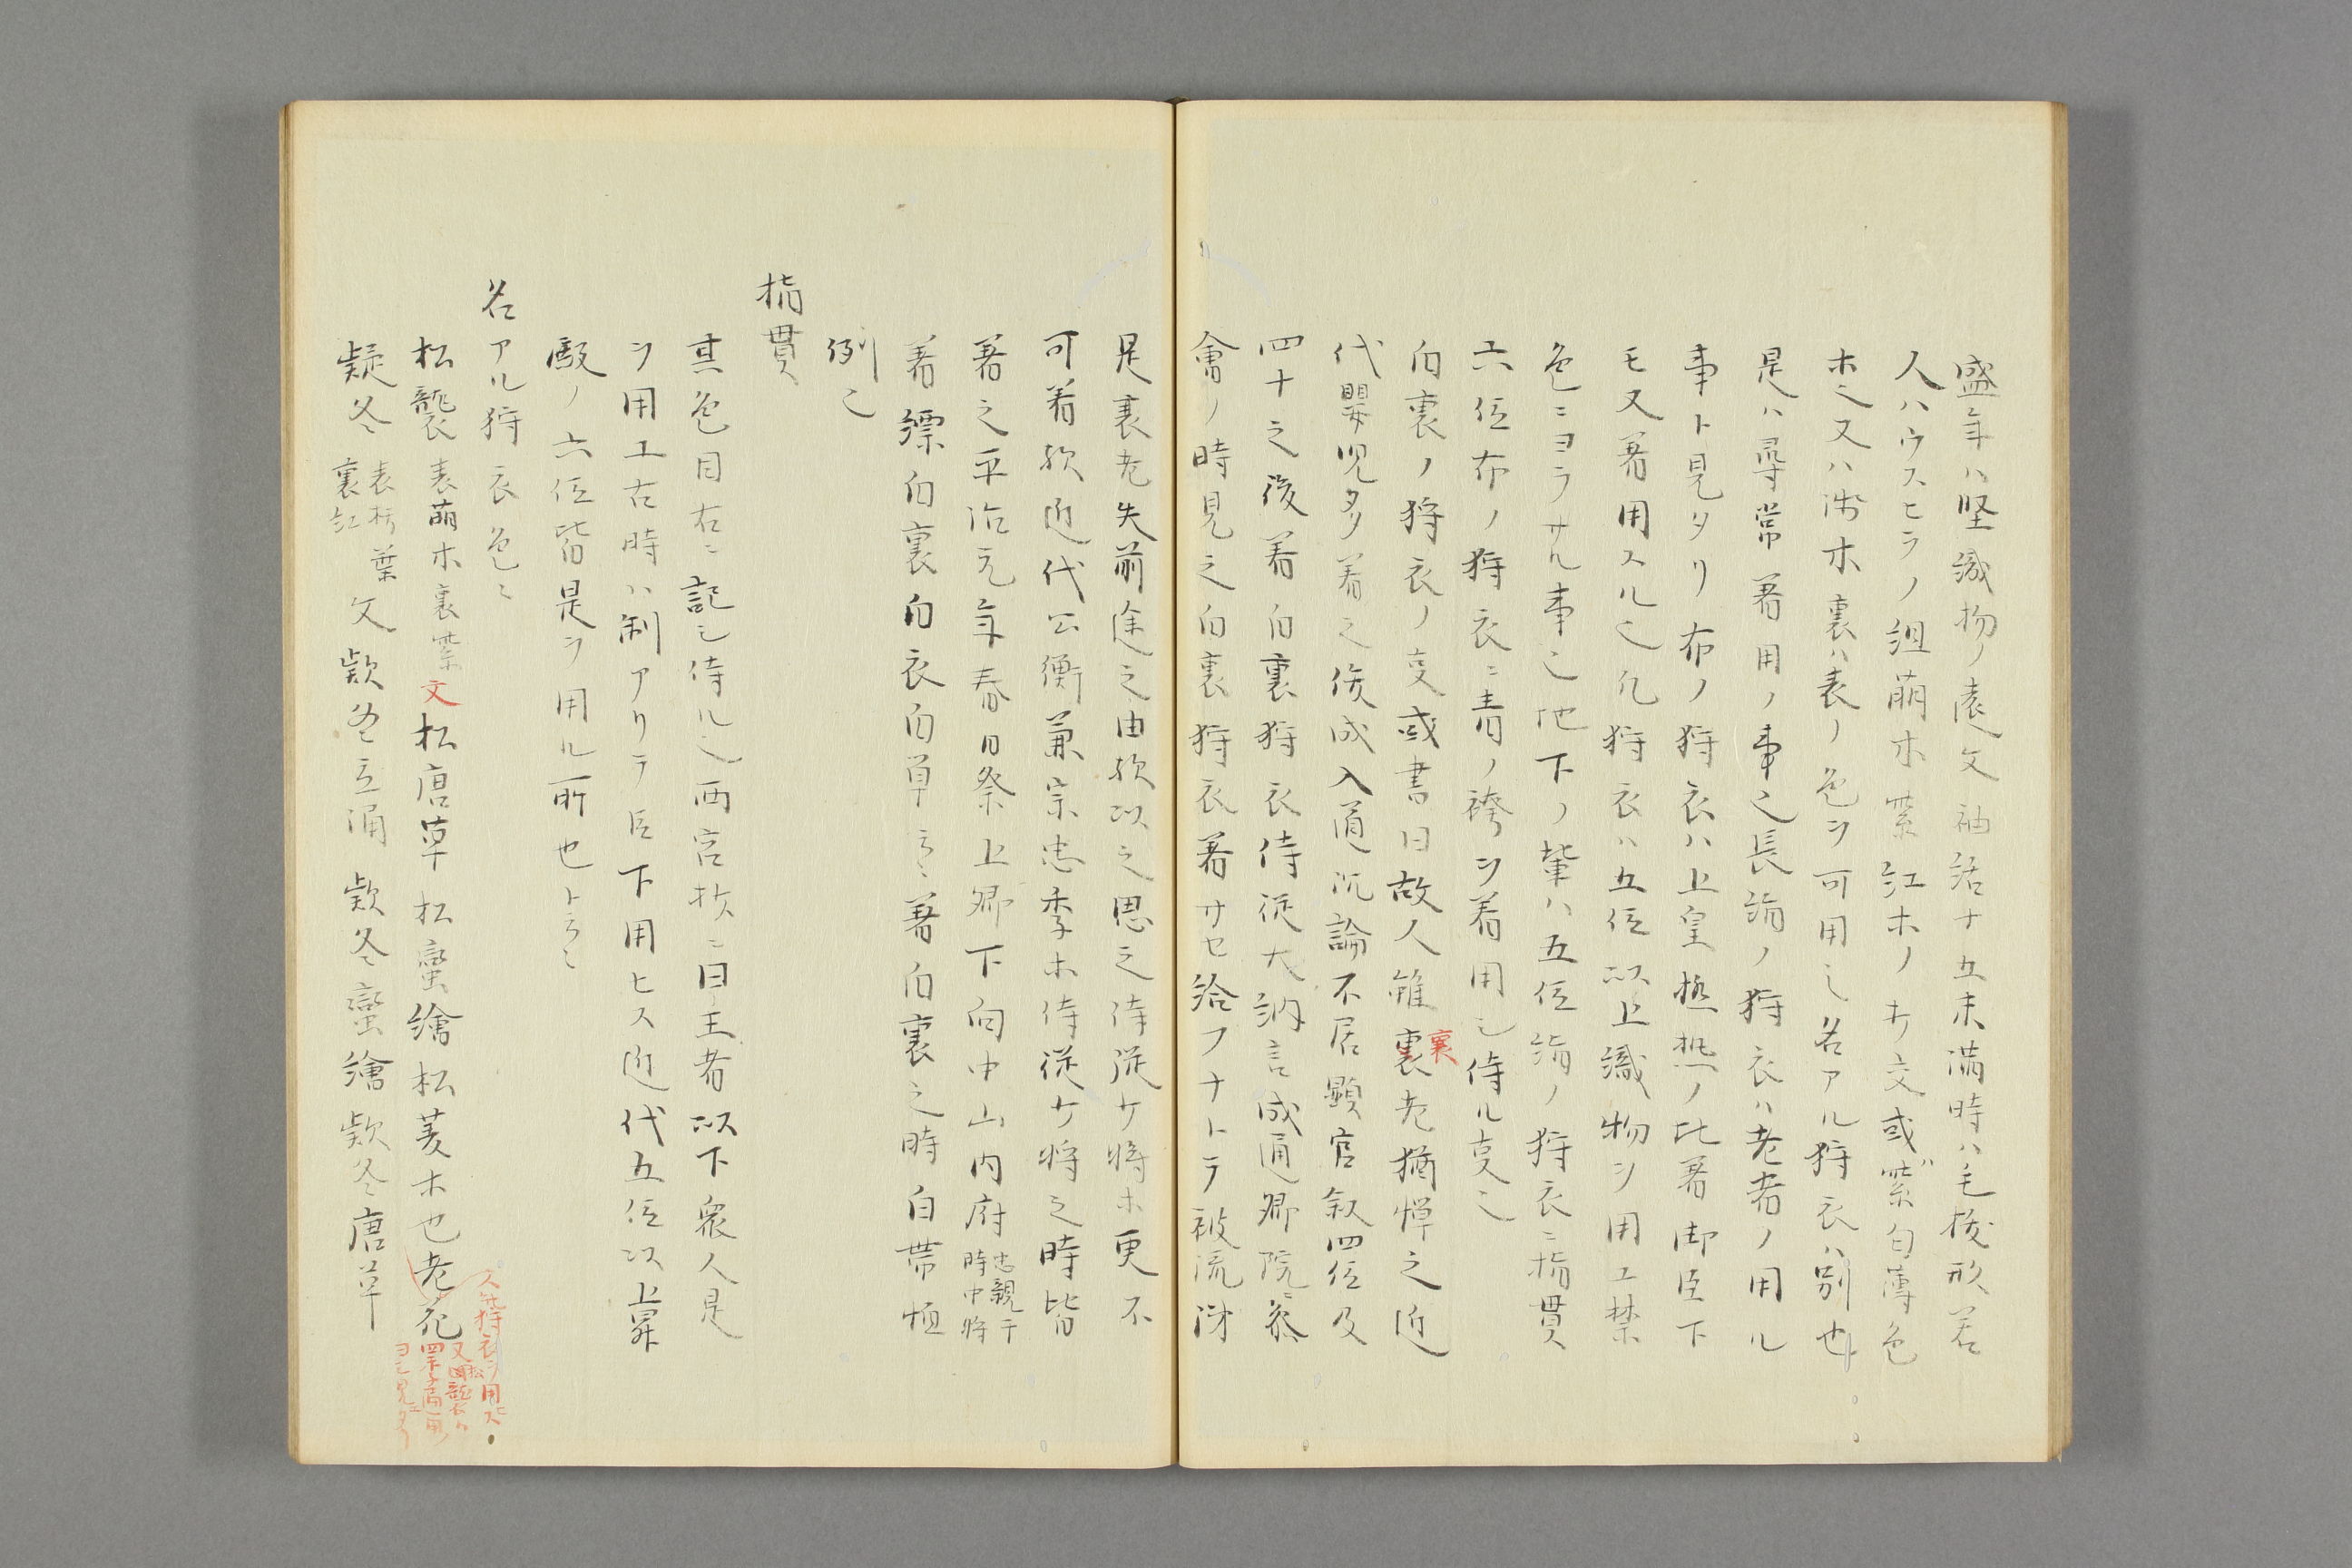 盛年ハ堅織物ノ遠文袖括十五未満時ハ毛抜形若
人ハウスヒラノ組萌木紫紅ホノ村交或ハ紫匂薄色
ホ之又ハ渋木裏ハ表ノ色ヲ可用之名アル狩衣ハ別也
是ハ尋常著用ノ事之長絹ノ狩衣ハ老者ノ用ル
事ト見タリ布ノ狩衣ハ上皇極热ノ比著御臣下
モ又著用スル之凡狩衣ハ五位以上織物ヲ用エ禁
色ニヨラサル事之地下ノ輩ハ五位絹ノ狩衣ニ指貫
六位布ノ狩衣ニ青ノ袴ヲ着用シ侍ル叓之
白裏ノ狩衣ノ叓或書曰故人雖裏老猶憚之近
衰
代嬰児多着之俊成入道沉論不居顕官叙四位及
四十之後着白裏狩衣侍従大納言成通卿院ニ参
會ノ時見之白裏狩衣著サセ給フナトテ被流涕
是裏老失前途之由欤以之思之侍従少将ホ更不
可着欤近代公衡兼宗忠季ホ侍従少将之時皆
著之平治元年春日祭上卿下向中山内府忠親于時中将
著縹白裏白衣白単云〻著白裏之時白帯恒
例之
指貫
其色目右ニ記シ侍ル之西宮抄ニ曰王者以下衆人是
ヲ用エ古時ハ制アリテ臣下用ヒス近代五位以上昇
殿ノ六位皆是ヲ用ル所也ト云〻
名アル狩衣色〻
松襲 表萌木裏紫文松唐草松蠻繪松菱ホ也老死
人此狩衣ヲ用ヒス
又松襲ハ
四季通用
ヨシ見エタリ
疑冬 表朽葉裏紅 文欵冬立涌 欵冬蠻繪欵冬唐草